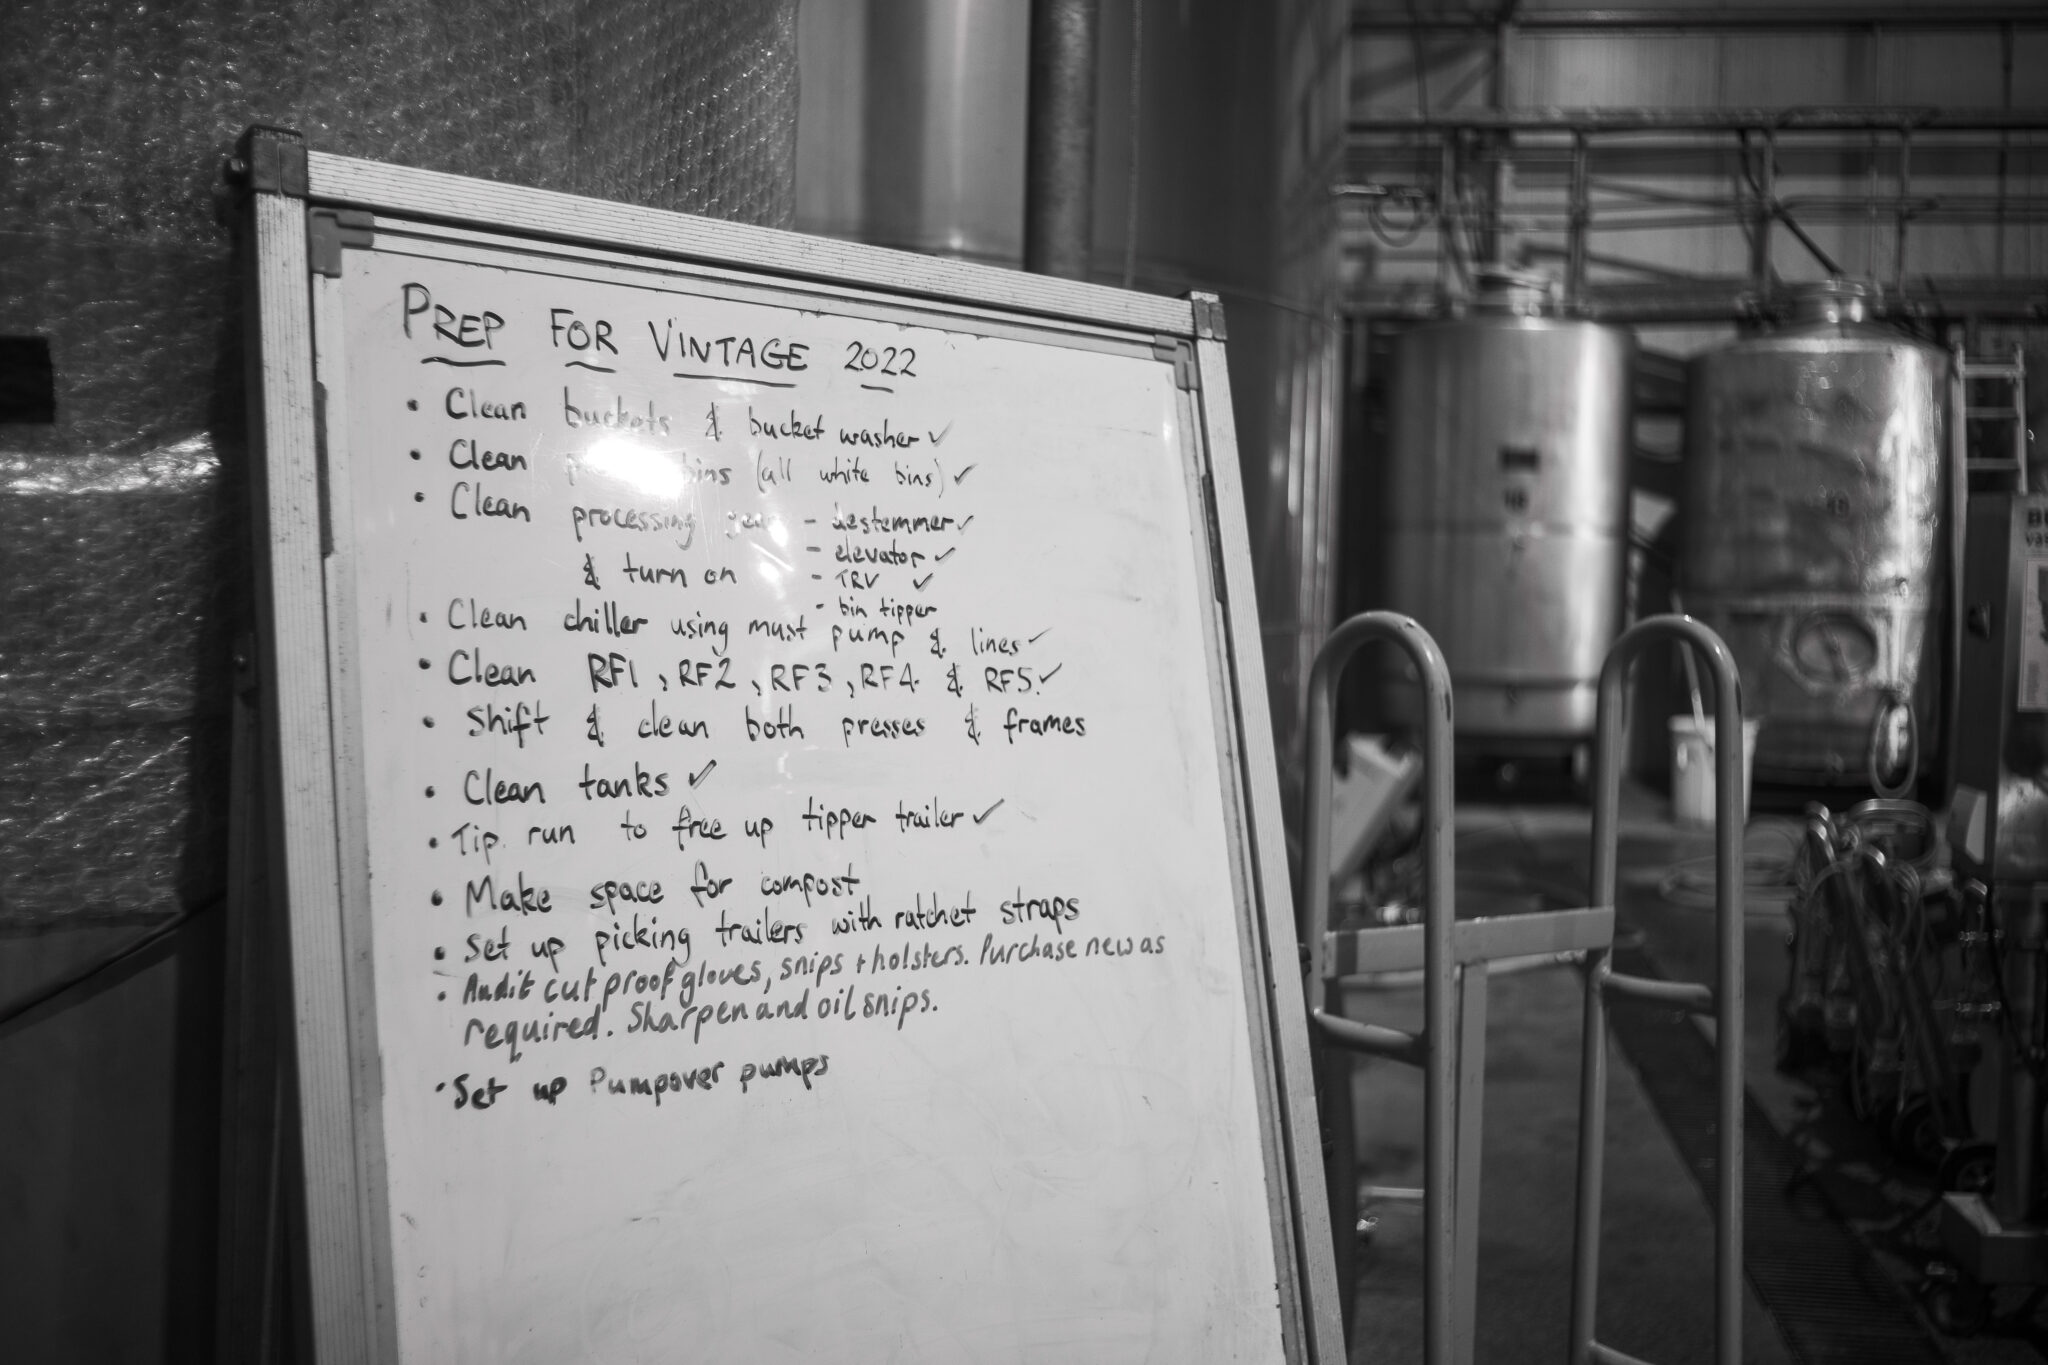 PREP FOR VINTAGE 2022
• Clean buckets & bucket washer ✓
• Clean bins (all white bins) ✓
• Clean processing gear - destemmer ✓
- elevator ✓
& turn on - TRV ✓
- bin tipper
• Clean chiller using must pump & lines ✓
• Clean RF1, RF2, RF3, RF4 & RF5. ✓
• Shift & clean both presses & frames
• Clean tanks ✓
• Tip run to free up tipper trailer ✓
• Make space for compost
• Set up picking trailers with ratchet straps
• Audit cut proof gloves, snips + holsters. Purchase new as
required. Sharpen and oil snips.
• Set up Pumpover pumps